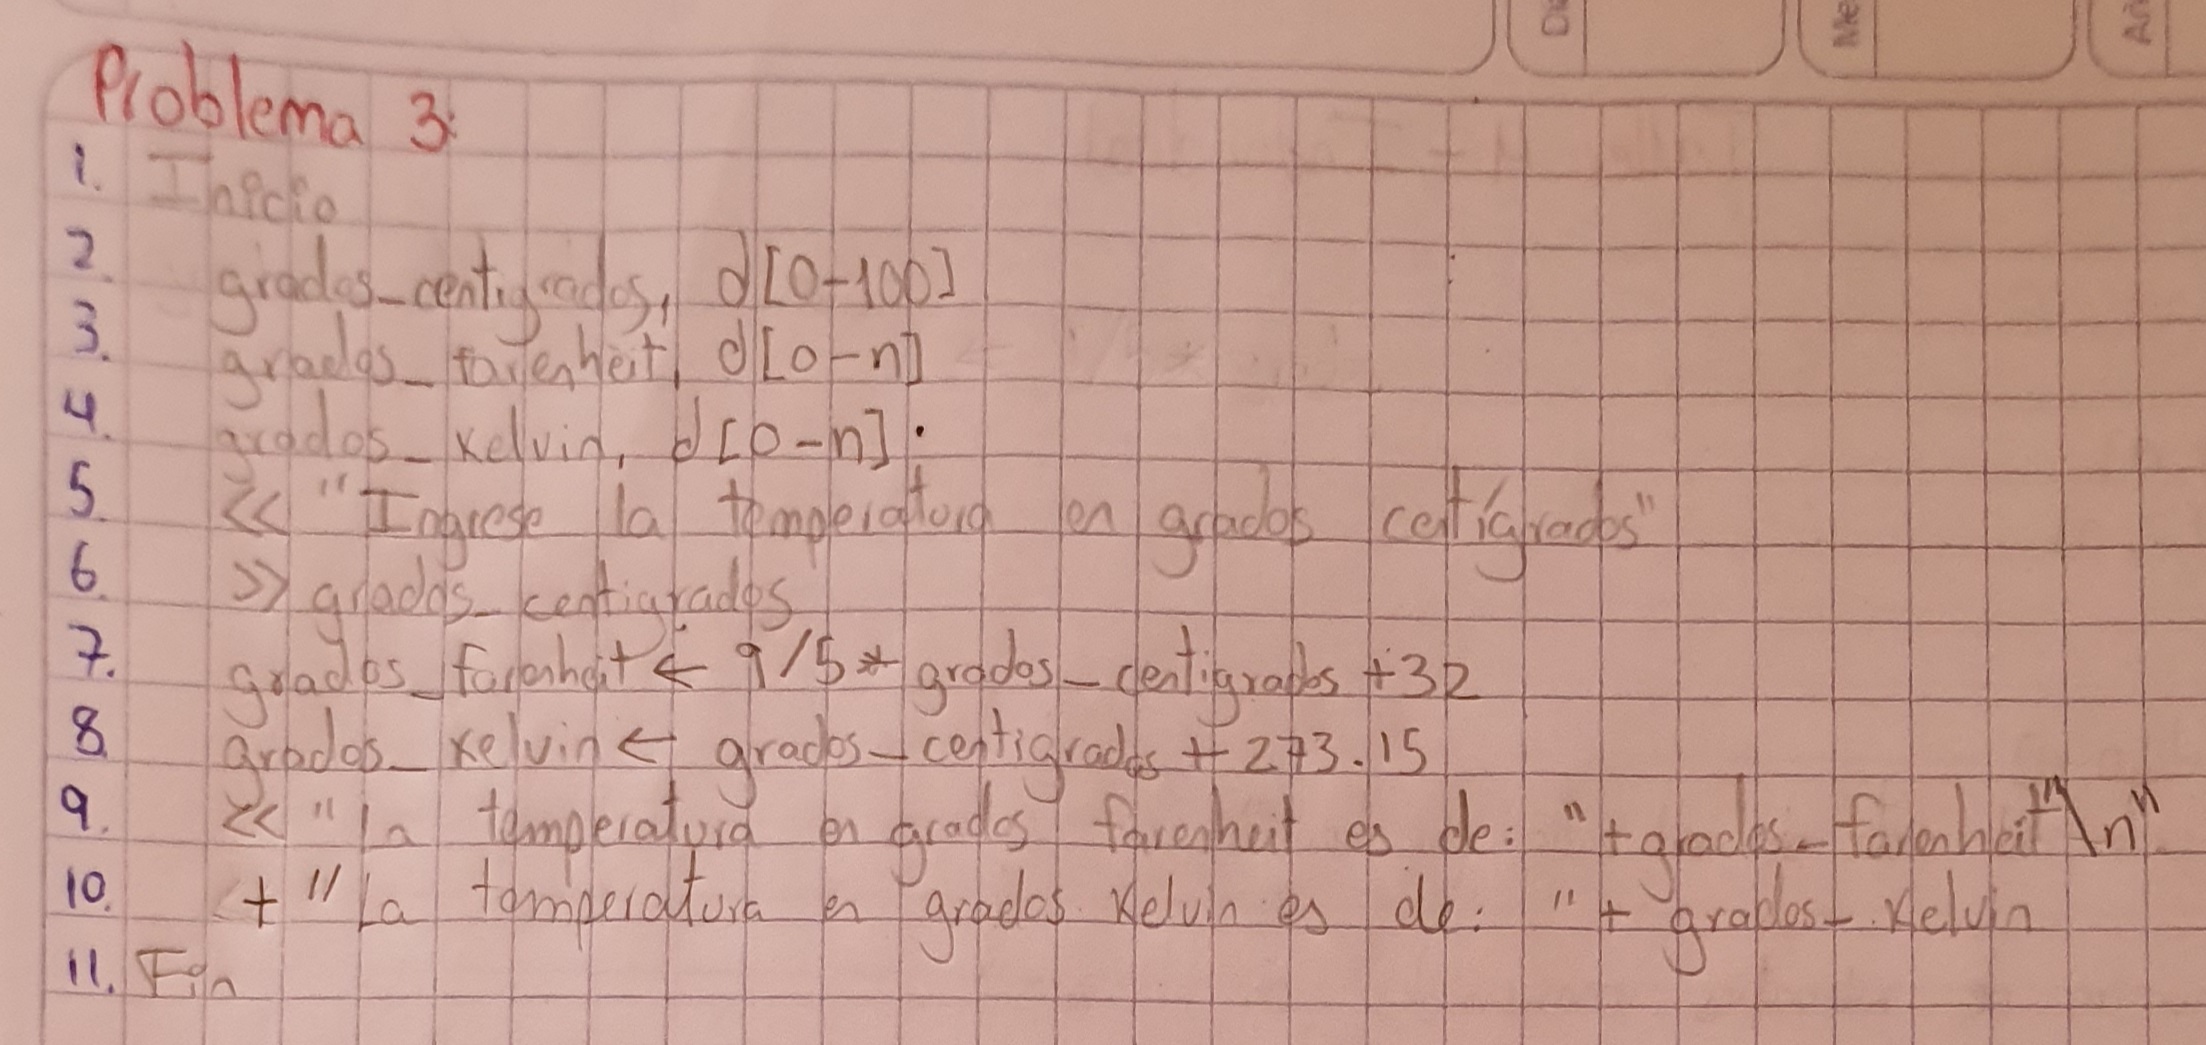 Di
Me
Añ
Problema 3:
1. Inicio
2. grados_centigrados, d[0-100]
3. grados_farenheit, d[0-n]
4. grados_kelvin, d[0-n].
5. << "Ingrese la temperatura en grados centígrados"
6. >> grados_centigrados
7. grados_farenheit ← 9/5 * grados_centigrados +32
8. grados_kelvin ← grados_centigrados + 273.15
9. << "La temperatura en grados farenheit es de: " + grados_farenheit "\n"
10. + "La temperatura en grados kelvin es de: " + grados_kelvin
11. Fin